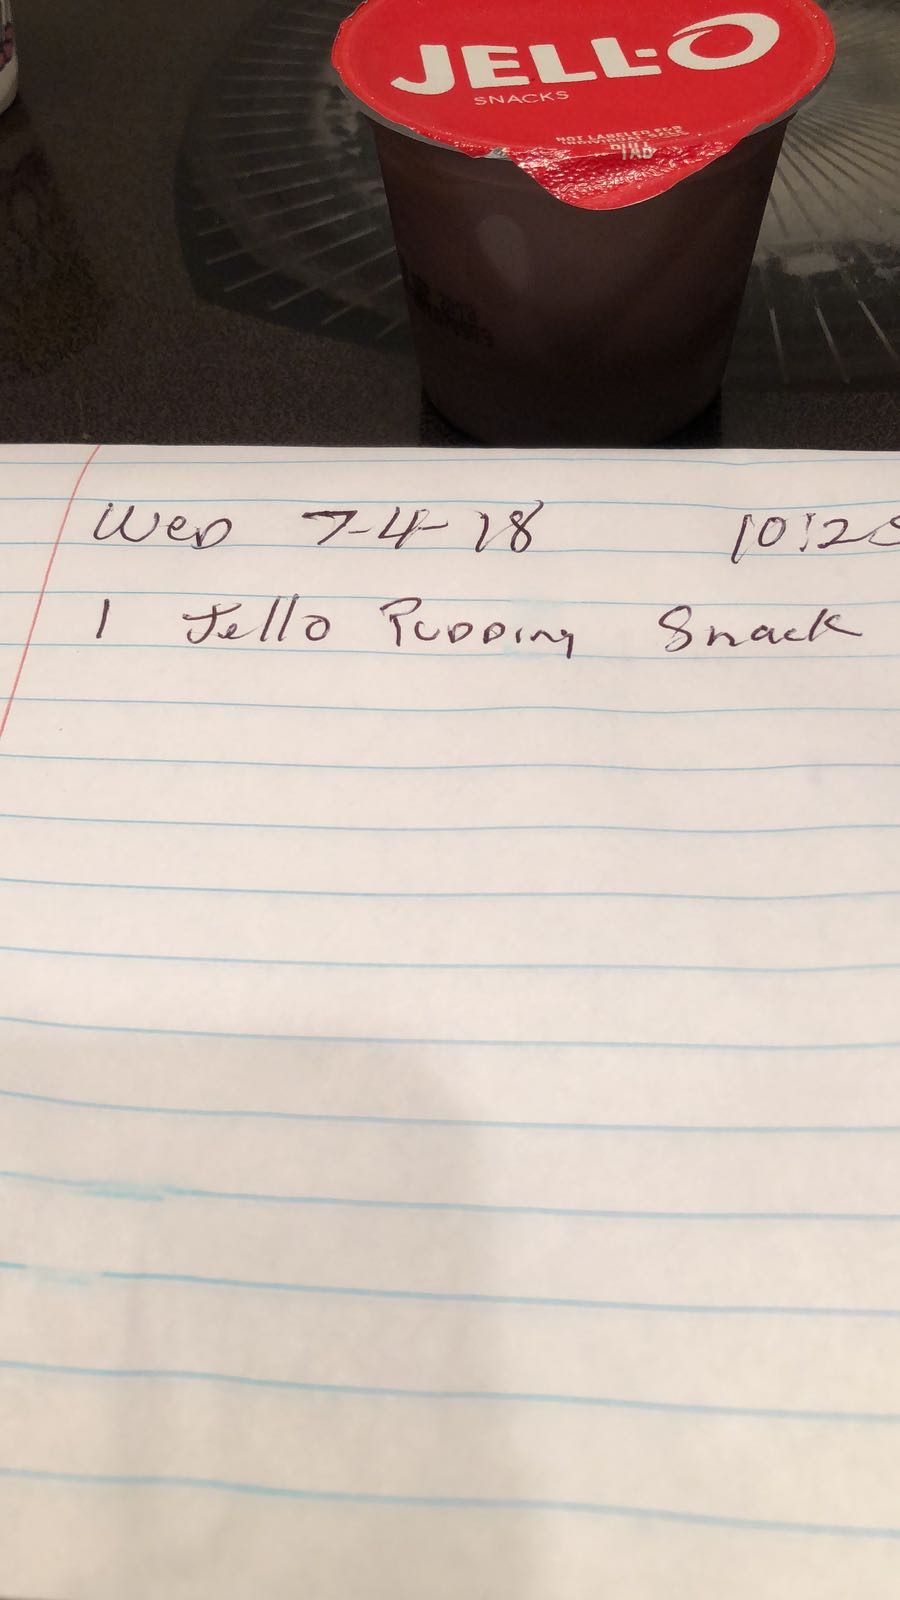 JELL-O
SNACKS
NOT LABELED FOR
INDIVIDUAL SALE
PULL
TAB
Wed 7-4-18
1 Jello Pudding Snack